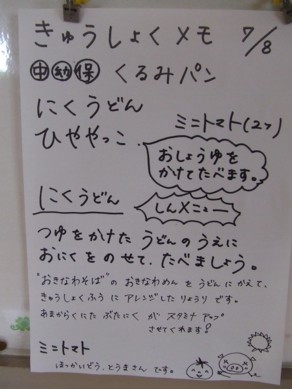 きゅうしょくメモ 7/8
中 幼 保 くるみパン
にくうどん
ひややっこ
ミニトマト(2コ)
おしょうゆを
かけてたべます。
にくうどん
しんメニュー
つゆをかけた うどんの うえに
おにくを のせて、たべましょう。
"おきなわそば"の おきなわめん を うどんに かえて、
きゅうしょくふうに アレンジした りょうり です。
あまからくにた ぶたにく が スタミナ アップ
させてくれます!
ミニトマト
ほっかいどう、とうまさん です。